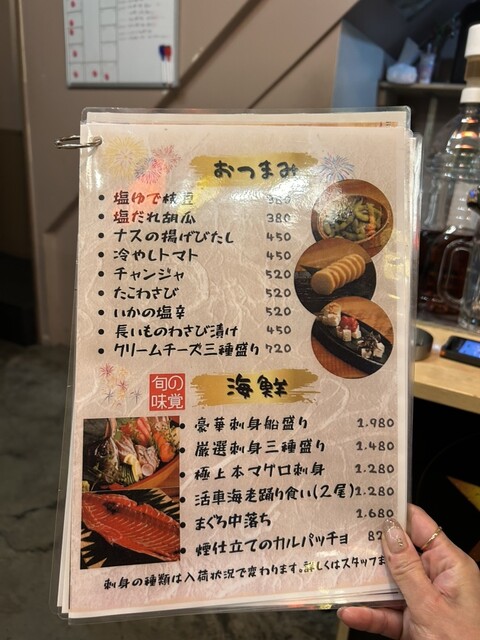 おつまみ
• 塩ゆで枝豆 380
• 塩だれ胡瓜 380
• ナスの揚げびたし 450
• 冷やしトマト 450
• チャンジャ 520
• たこわさび 520
• いかの塩辛 520
• 長いものわさび漬け 450
• クリームチーズ三種盛り 720
旬の味覚
海鮮
• 豪華刺身船盛り 2.980
• 厳選刺身三種盛り 1.480
• 極上本マグロ刺身 1.280
• 活車海老踊り食い(2尾) 1.280
• まぐろ中落ち 1.680
• 燻仕立てのカルパッチョ 82
刺身の種類は入荷状況で変わります。詳しくはスタッフま